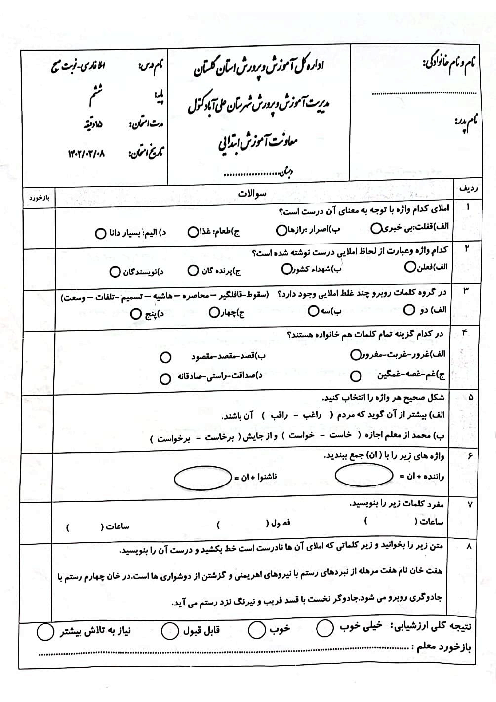 نام و نام خانوادگی:
نام پدر:
اداره کل آموزش و پرورش استان گلستان
مدیریت آموزش و پرورش شهرستان علی آباد کتول
معاونت آموزش ابتدایی
دبستان..................
نام درس: املا فارسی-نوبت صبح
پایه: ششم
مدت امتحان: ۱۵ دقیقه
تاریخ امتحان: ۱۴۰۲/۰۳/۰۸
ردیف سوالات بازخورد
۱ املای کدام واژه با توجه به معنای آن درست است؟
الف)قفلت:بی خبری ب)اصرار :رازها ج)طعام: غذا د) الیم: بسیار دانا
۲ کدام واژه وعبارت از لحاظ املایی درست نوشته شده است؟
الف)فعلن ب)شهداء کشور ج)پرنده گان د)نویسندگان
۳ در گروه کلمات روبرو چند غلط املایی وجود دارد؟ (سقوط-قافلگیر – محاصره – هاشیه – تسمیم -تلفات – وسعت)
الف) دو ب)سه ج)چهار د)پنج
۴ در کدام گزینه تمام کلمات هم خانواده هستند؟
الف)غرور-غربت-مغرور ب)قصد-مقصد-مقصود
ج)غم-غصه-غمگین د)صداقت-راستی-صادقانه
۵ شکل صحیح هر واژه را انتخاب کنید.
الف) بیشتر از آن گوید که مردم ( راغب - راقب ) آن باشند.
ب) محمد از معلم اجازه ( خاست - خواست ) و از جایش( برخاست - برخواست )
۶ واژه های زیر را با ( ان) جمع ببندید.
راننده + ان = ناشنوا + ان =
۷ مفرد کلمات زیر را بنویسید.
ساعات ( ) فصول ( ) ساعات ( )
۸ متن زیر را بخوانید و زیر کلماتی که املای آن ها نادرست است خط بکشید و درست آن را بنویسید.
هفت خان نام هفت مرهله از نبردهای رستم با نیروهای اهریمنی و گزشتن از دوشواری ها است.در خان چهارم رستم با
جادوگری روبرو می شود.جادوگر نخست با قسد فریب و نیرنگ نزد رستم می آید.
نتیجه کلی ارزشیابی: خیلی خوب خوب قابل قبول نیاز به تلاش بیشتر
بازخورد معلم :